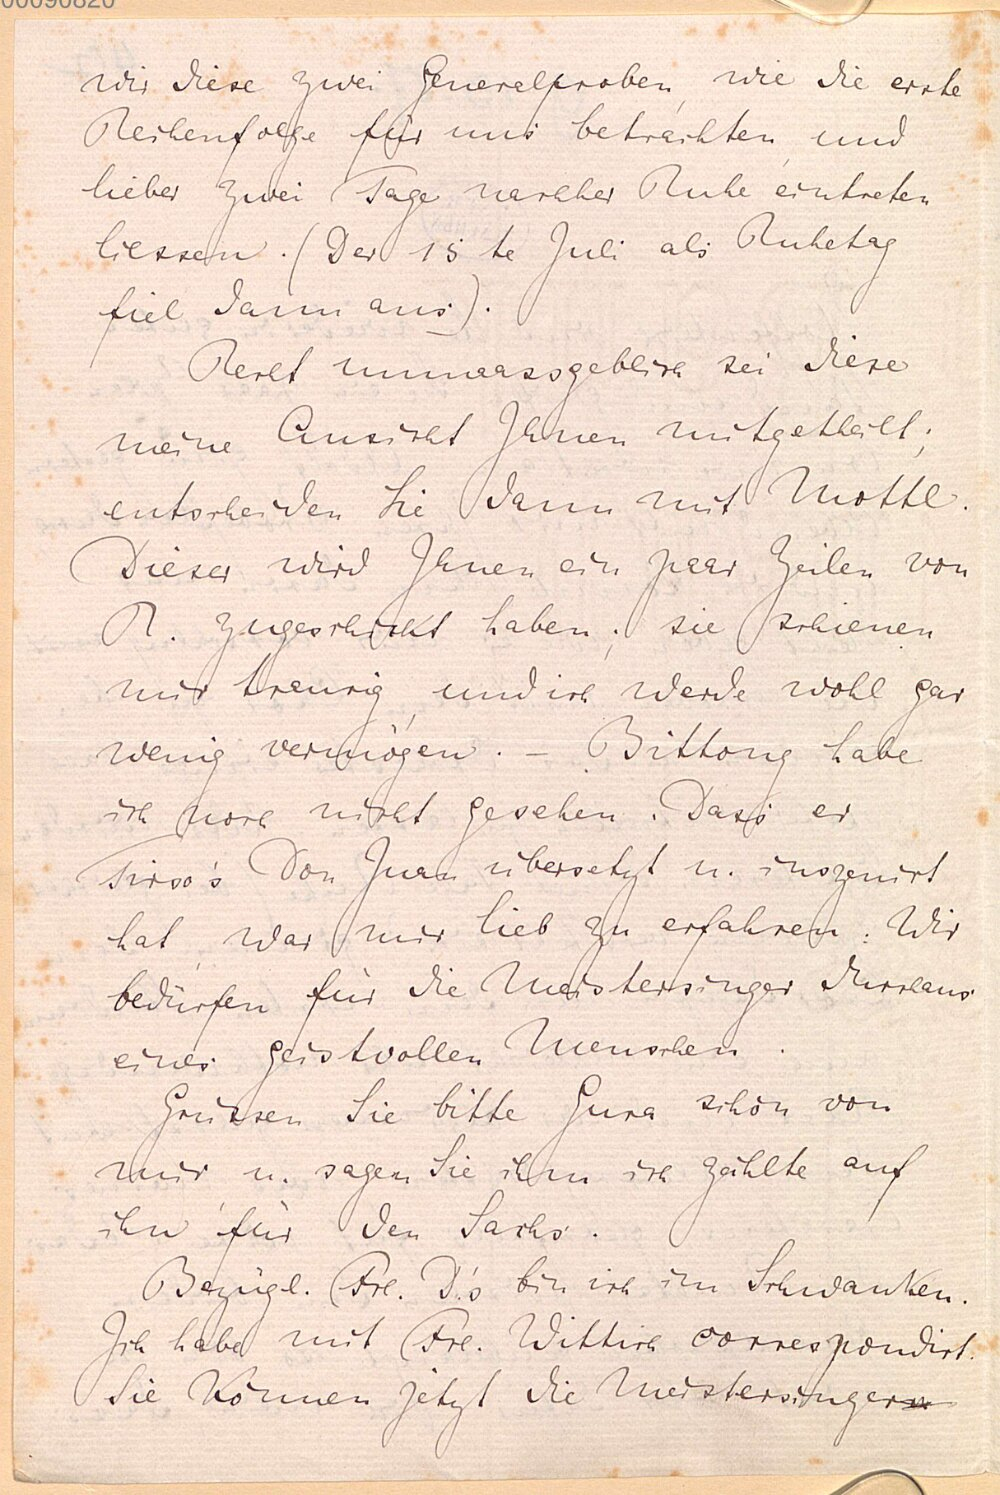 00090820
wir diese zwei Generalproben, wie die erste
Reihenfolge für uns betrachten, und
lieber zwei Tage nachher Ruhe eintreten
liessen. (Der 15te Juli als Ruhetag
fiel dann aus).
Recht unmaassgeblich sei diese
meine Ansicht Ihnen mitgetheilt;
entscheiden Sie dann mit Mottl.
Dieser wird Ihnen ein paar Zeilen von
R. zugeschickt haben; sie schienen
mir traurig, und ich werde wohl gar
wenig vermögen. – Bittong habe
ich noch nicht gesehen. Dass er
Tirso's Don Juan übersetzt u. inszenirt
hat, war mir lieb zu erfahren. Wir
bedürfen für die Meistersinger durchaus
eines geistvollen Menschen.
Grüssen Sie bitte Gura schön von
mir u. sagen Sie ihm ich zählte auf
ihn für den Sachs.
Bezügl. Frl. D's bin ich im Schwanken.
Ich habe mit Frl. Wittich correspondirt.
Sie können jetzt die Meistersinger